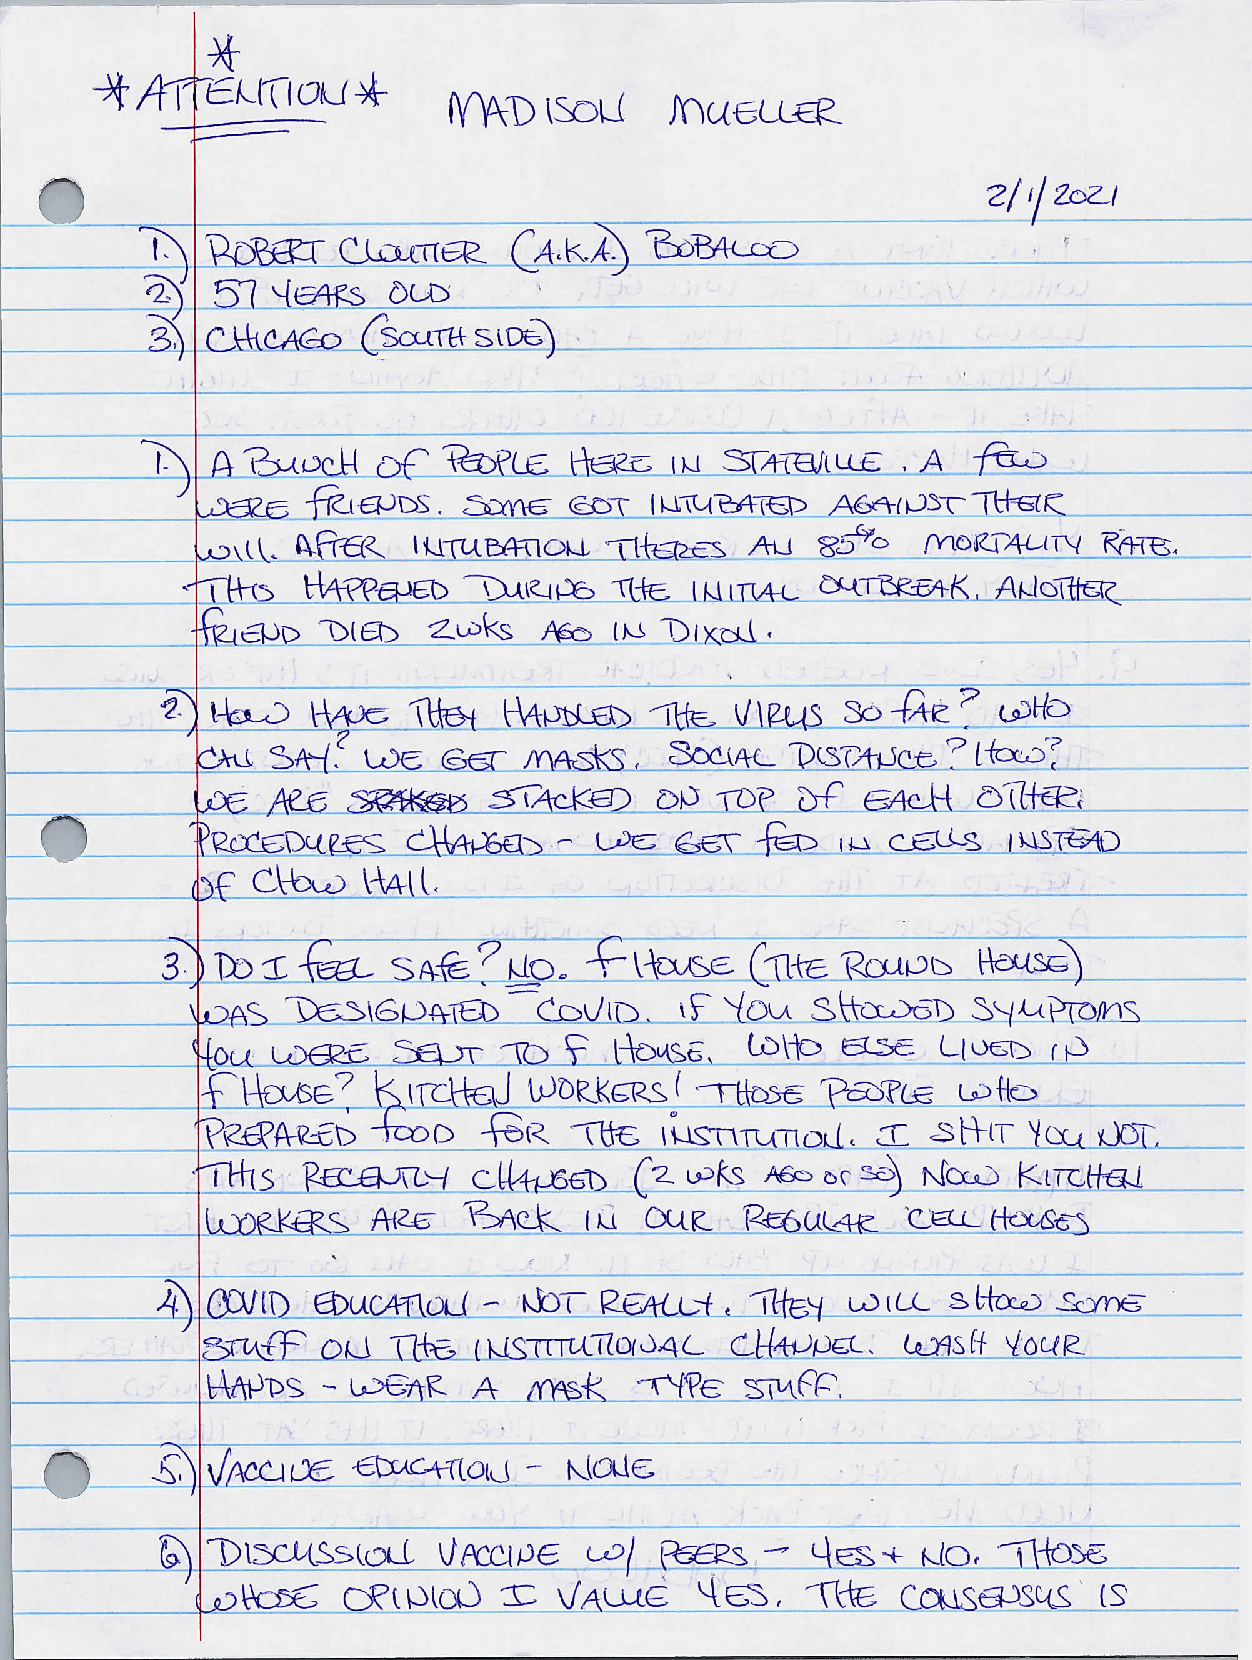 *
*ATTENTION* MADISON MUELLER
2/1/2021
1.) ROBERT CLOUTIER (A.K.A.) BOBALOO
2.) 57 YEARS OLD
3.) CHICAGO (SOUTH SIDE)
1.) A BUNCH OF PEOPLE HERE IN STATEVILLE. A FEW
WERE FRIENDS. SOME GOT INTUBATED AGAINST THEIR
WILL. AFTER INTUBATION THERES AN 85% MORTALITY RATE.
THIS HAPPENED DURING THE INITIAL OUTBREAK. ANOTHER
FRIEND DIED 2WKS AGO IN DIXON.
2.) HOW HAVE THEY HANDLED THE VIRUS SO FAR? WHO
CAN SAY? WE GET MASKS. SOCIAL DISTANCE? HOW?
WE ARE STACKED ON TOP OF EACH OTHER.
PROCEDURES CHANGED - WE GET FED IN CELLS INSTEAD
OF CHOW HALL.
3.) DO I FEEL SAFE? NO. F HOUSE (THE ROUND HOUSE)
WAS DESIGNATED COVID. IF YOU SHOWED SYMPTOMS
YOU WERE SENT TO F HOUSE. WHO ELSE LIVED IN
F HOUSE? KITCHEN WORKERS! THOSE PEOPLE WHO
PREPARED FOOD FOR THE INSTITUTION. I SHIT YOU NOT.
THIS RECENTLY CHANGED (2 WKS AGO OR SO) NOW KITCHEN
WORKERS ARE BACK IN OUR REGULAR CELL HOUSES
4.) COVID EDUCATION - NOT REALLY. THEY WILL SHOW SOME
STUFF ON THE INSTITUTIONAL CHANNEL. WASH YOUR
HANDS - WEAR A MASK TYPE STUFF.
5.) VACCINE EDUCATION - NONE
6.) DISCUSSION VACCINE W/ PEERS - YES + NO. THOSE
WHOSE OPINION I VALUE YES. THE CONSENSUS IS